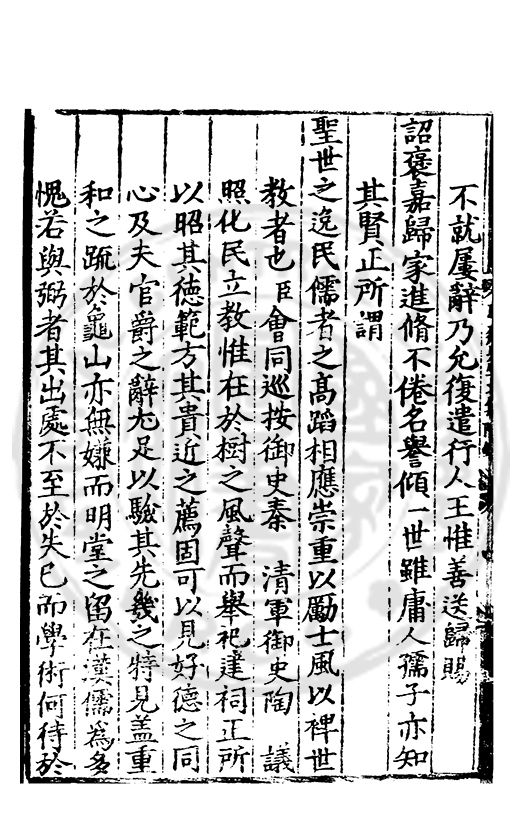 不就屢辭乃允復遣行人王惟善送歸賜
詔褒嘉歸家進脩不倦名譽傾一世雖庸人孺子亦知
其賢正所謂
聖世之逸民儒者之高蹈相應崇重以勵士風以裨世
教者也臣會同巡按御史秦 清軍御史陶 議
照化民立教惟在於樹之風聲而舉祀建祠正所
以昭其德範方其貴近之薦固可以見好德之同
心及夫官爵之辭尤足以驗其先幾之特見盖重
和之䟽於龜山亦無嫌而明堂之留在漢儒爲多
愧若與弼者其出處不至於失已而學術何待於